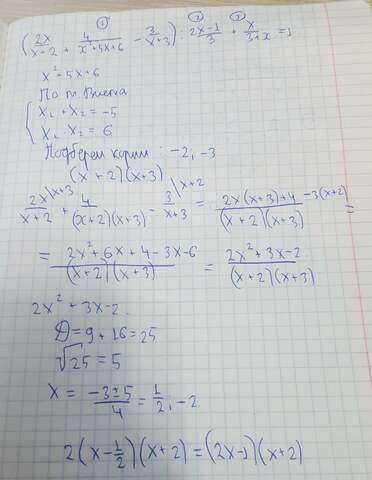 ① ② ③
(2x/(x-2) + 4/(x²+5x+6) - 3/(x+3)) : (2x-1)/3 + x/(3+x) = 1
x²+5x+6
По т. Виета
{ x₁ + x₂ = -5
x₁ · x₂ = 6
Подберем корни: -2, -3
(x+2)(x+3)
2x\x+3/(x+2) + 4/((x+2)(x+3)) - 3\x+2/(x+3) = (2x(x+3)+4-3(x+2))/((x+2)(x+3)) =
= (2x²+6x+4-3x-6)/((x+2)(x+3)) = (2x²+3x-2)/((x+2)(x+3))
2x²+3x-2.
D = 9+16=25
√25 = 5
x = (-3±5)/4 = 1/2, -2
2(x-1/2)(x+2) = (2x-1)(x+2)